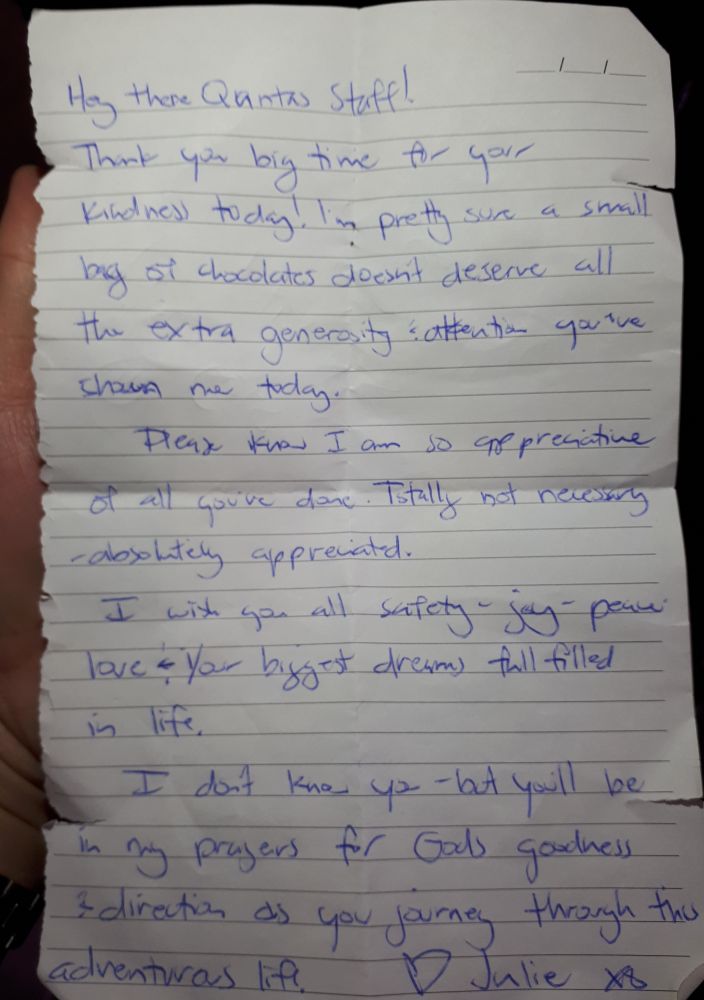 Hey there Qantas Staff!
Thank you big time for your
kindness today! I'm pretty sure a small
bag of chocolates doesn't deserve all
the extra generosity & attention you've
shown me today.
Please know I am so appreciative
of all you've done. Totally not necessary
- absolutely appreciated.
I wish you all safety - joy - peace
love & your biggest dreams fullfilled
in life.
I don't know ya - but you'll be
in my prayers for Gods goodness
& direction as you journey through this
adventurous life. ♡ Julie xo